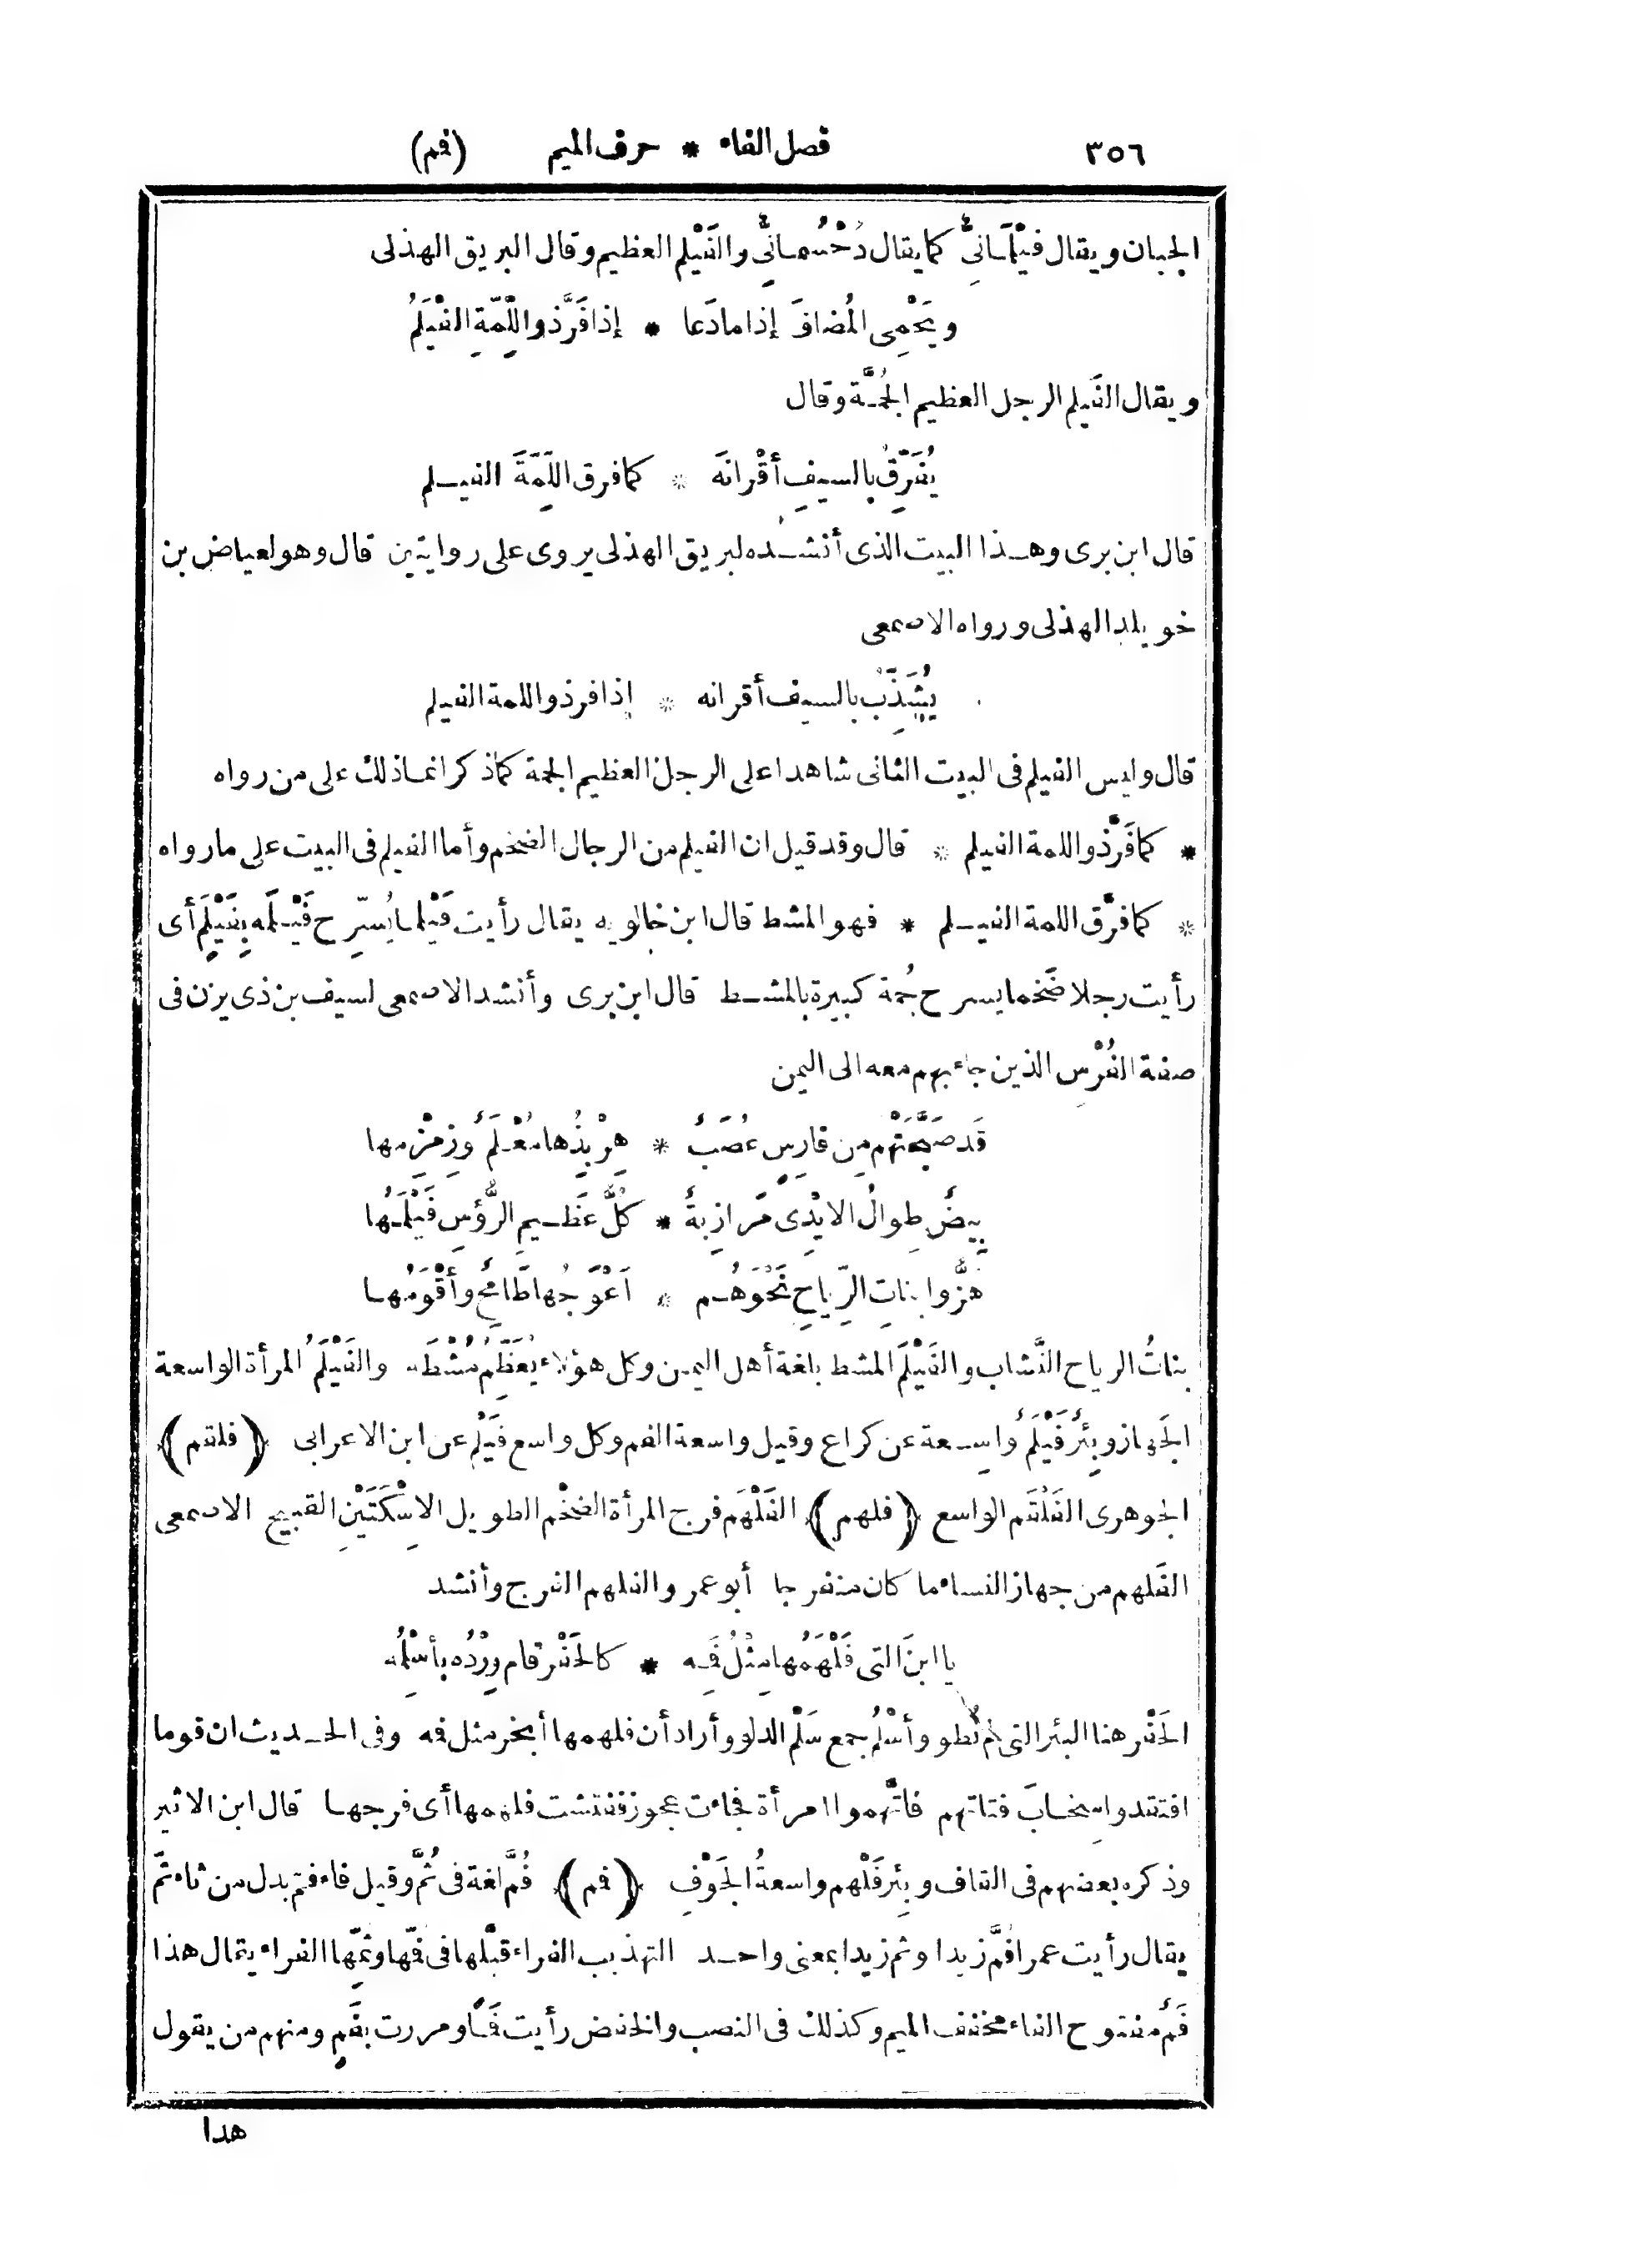 ٣٥٦ فصل الفاء * حرف الميم (فم)
الجبان ويقال فَيْلَمانِىٌّ كما يقال دُحْسُمانِىٌّ والفَيْلم العظيم وقال البريق الهذلى
ويَحْمِى المُضافَ إذا مادَعا * إذا فَرَّ ذو اللِّمّةِ الفَيْلَمُ
ويقال الفَيلم الرجل العظيم الجُمَّة وقال
يُفَرِّقُ بالسيفِ أقْرانَه * كما فرق اللِّمَّةَ الفيلم
قال ابن برى وهذا البيت الذى أنشده لبريق الهذلى يروى على روايتين قال وهو لعياض بن
خويلد الهذلى ورواه الاصمعى
يُشَذِّبُ بالسيف أقرانه * إذا فر ذو اللمة الفيلم
قال وليس الفيلم فى البيت الثانى شاهدا على الرجل العظيم الجمة كما ذكر انما ذلك على من رواه
* كما فَرَّ ذو اللمة الفيلم * قال وقد قيل ان الفيلم من الرجال الضخم وأما الفيلم فى البيت على مارواه
* كما فرَّق اللمة الفيلم * فهو المشط قال ابن خالويه يقال رأيت فَيْلما يُسَرِّح فَيْلَمه بِفَيْلَمٍ أى
رأيت رجلا ضَخما يسرح جُمة كبيرة بالمشط قال ابن برى وأنشد الاصمعى لسيف بن ذى يزن فى
صفة الفُرْسِ الذين جاء بهم معه الى اليمن
قَد صَبَّحَتْهم مِن فارِسٍ عُصَبٌ * هِرْبِذُها مُعْلَمٌ وزِمْزِمها
بِيضٌ طِوالُ الايْدِى مَرازِبةٌ * كُلُّ عَظِيمِ الرُّؤسِ فَيْلَمُها
هَزُّوا بناتِ الرِّياحِ نَحْوَهُم * أعْوَجُها طامِحٌ وأقْوَمُها
بناتُ الرياح النُّشاب والفَيْلَم المشط بلغة أهل اليمن وكل هؤلاء يُعَظِّمُ مُشْطَه والفَيْلَمُ المرأة الواسعة
الجَهاز وبِئْرٌ فَيْلَمٌ واسِعة عن كراع وقيل واسعة الفم وكل واسع فَيْلم عن ابن الاعرابى (فلقم)
الجوهرى الفَلْقَم الواسع (فلهم) الفَلْهَم فرج المرأة الضخْم الطويل الاِسْكَتَيْنِ القبيح الاصمعى
الفَلهم من جهاز النساء ما كان منفرجا أبو عمرو الفلهم الفرج وأنشد
يا ابنَ التى فَلْهَمُها مِثْلُ فَمِه * كالحَفْر قام وِرْدُه بأسْلُمه
الحَفْر هنا البئر التى لم تُطو وأسْلُم جمع سَلْم الدلو وأراد أن فلهمها أبخر مثل فمه وفى الحديث ان قوما
افتقدوا سِخابَ فتاتهم فاتَّهموا امرأة فجاءت عجوز ففتشت فلهمها أى فرجها قال ابن الاثير
وذكره بعضهم فى القاف وبِئر فَلْهم واسعةُ الجَوْفِ (فم) فُمَّ لغة فى ثُمَّ وقيل فاء فمّ بدل من ثاء ثمّ
يقال رأيت عمرا فُمَّ زيدا وثم زيدا بمعنى واحد التهذيب الفراء قبّلها فى فمِّها وثمِّها الفراء يقال هذا
فَمٌ مفتوح الفاء مخفف الميم وكذلك فى النصب والخفض رأيت فَمًا ومررت بفَمٍ ومنهم من يقول
هذا